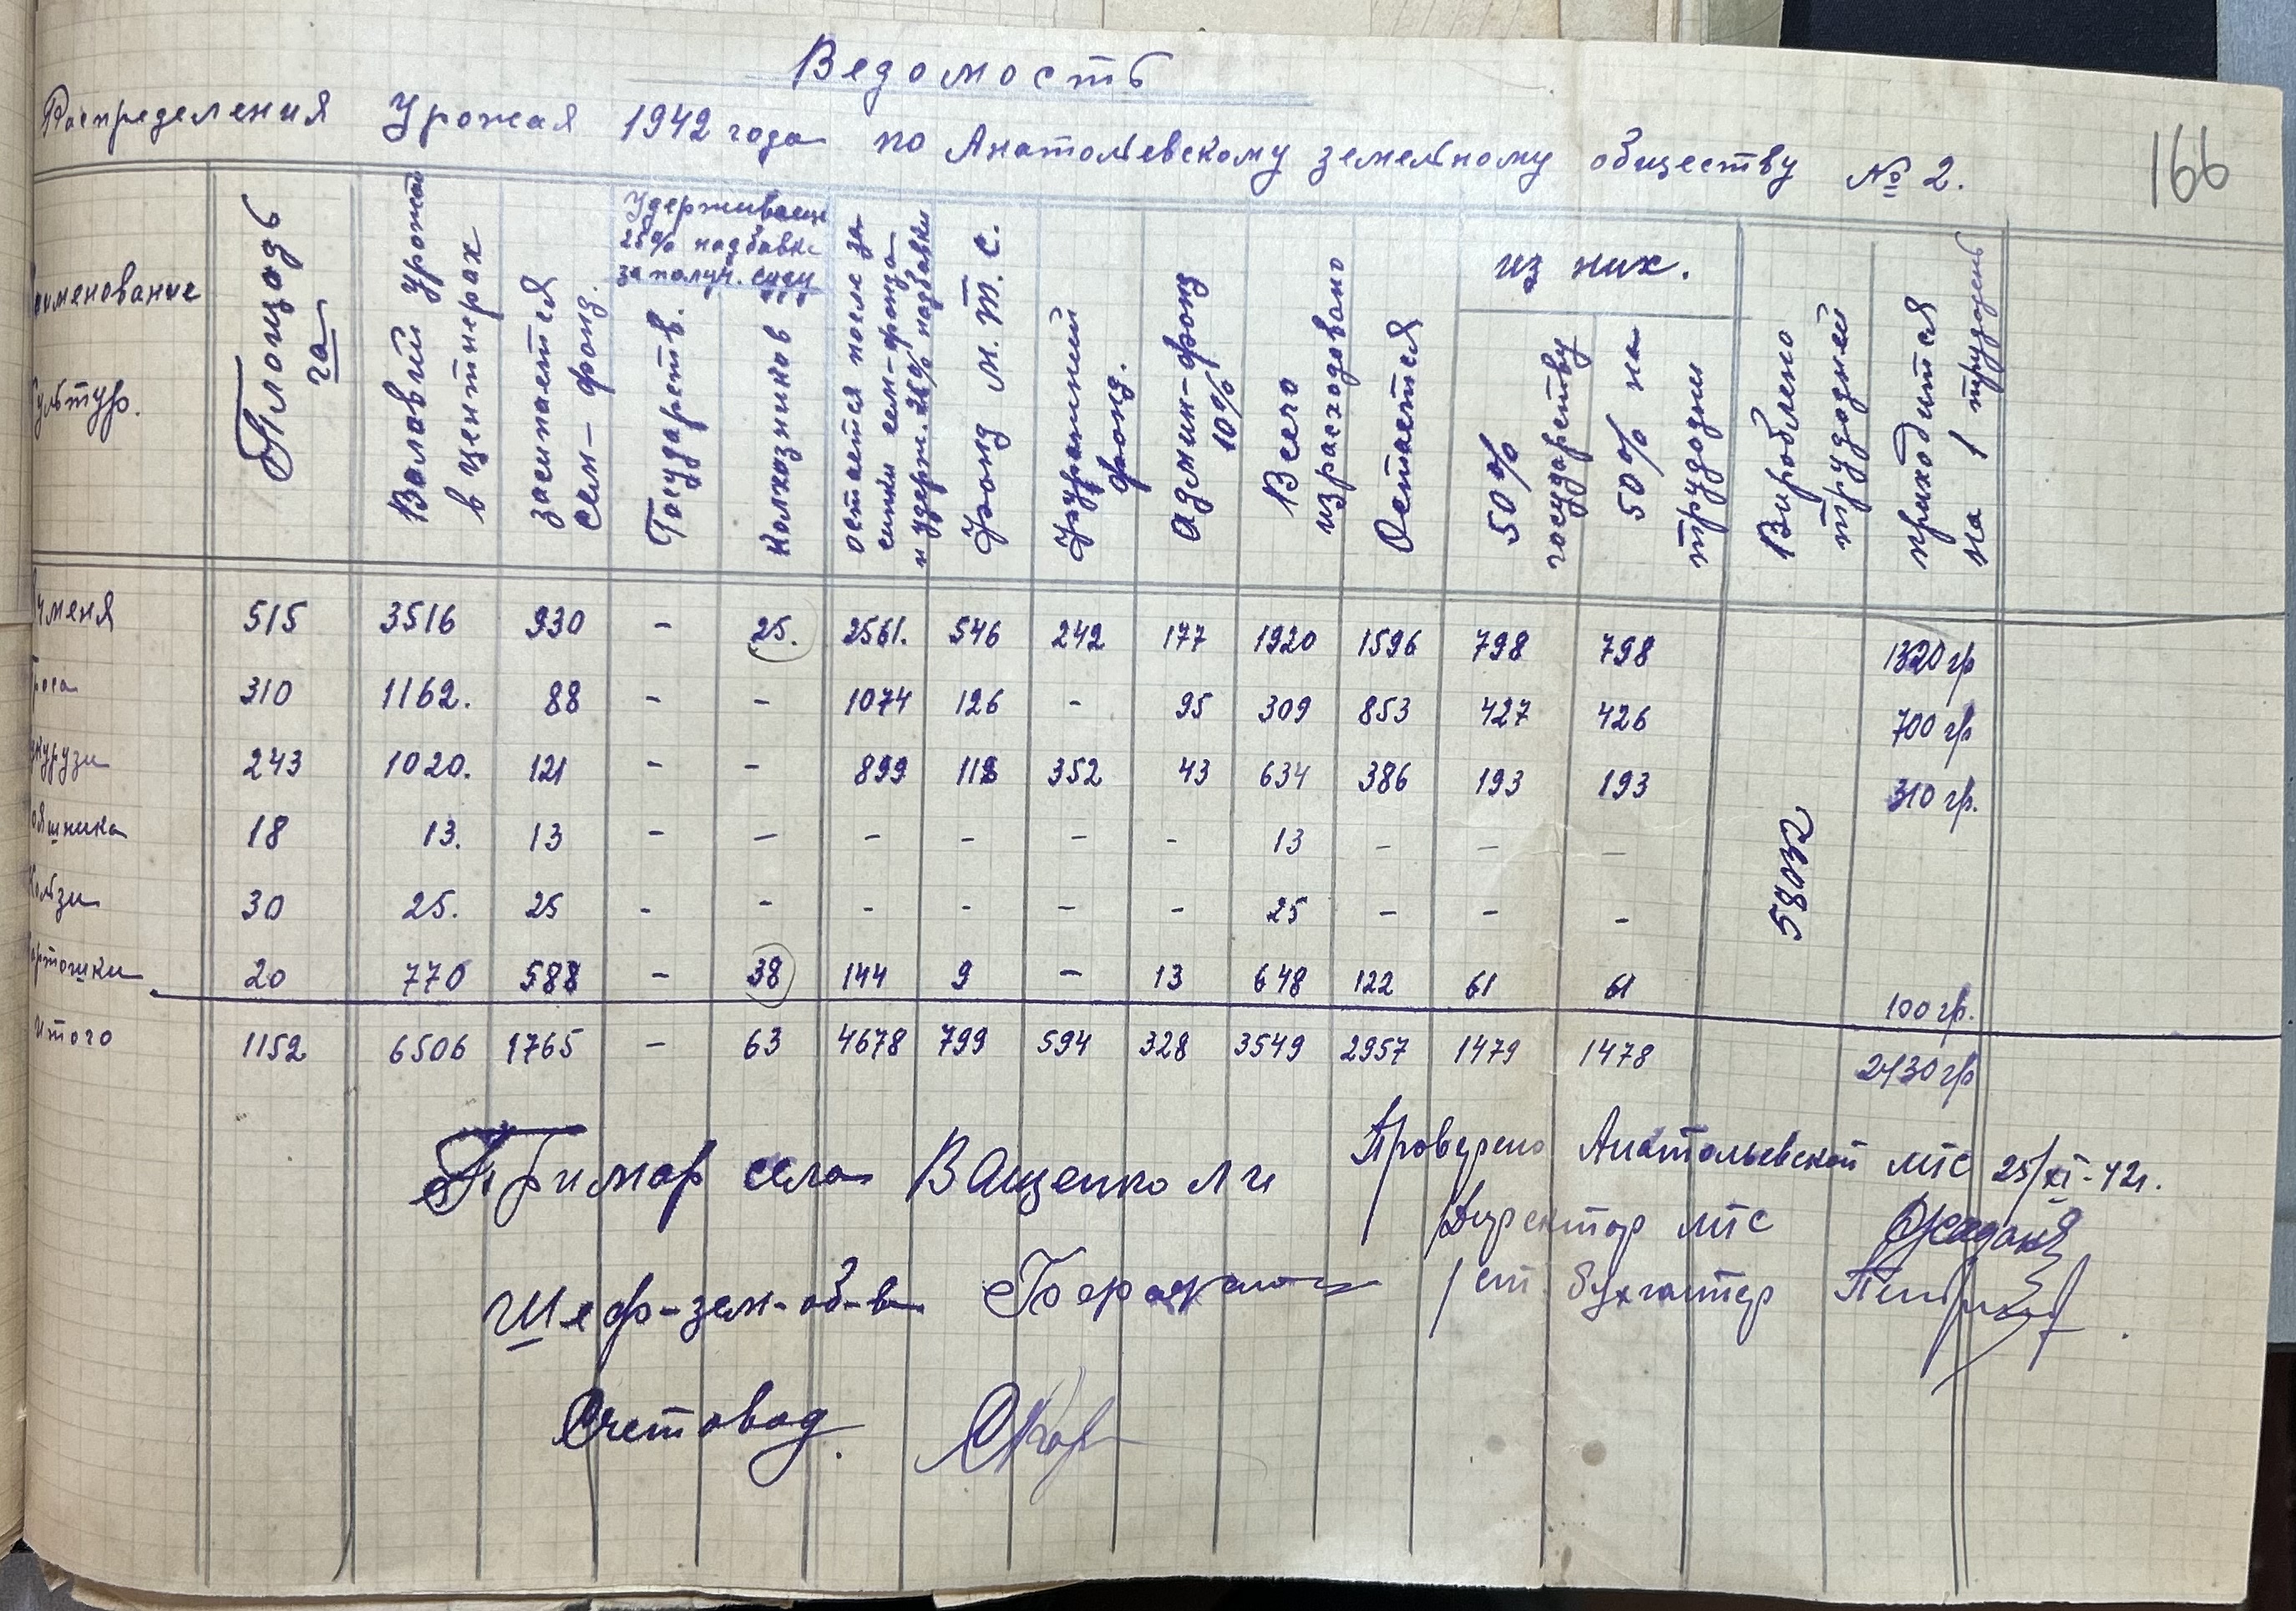 Ведомость
Распределения Урожая 1942 года по Анатольевскому земельному обществу № 2.
166
аименование культур.
Площадь га
Валовый урожай в центнерах
засипается сем-фонд.
Удерживаець 25% надбавка за получ. ссуду
Государств.
Колхозников
остается после засипки сем-фонда и удерж. 25% надбавки
Фонд М.Т.С.
Фуражний фонд.
Админ-фонд 10%
Всего израсходовано
Остается
из них.
50% государству
50% на трудодни
Вироблено трудодней
приходится на 1 трудодень
чменя 515 3516 930 - 25. 2561. 546 242 177 1920 1596 798 798 1320 гр
роса 310 1162. 88 - - 1074 126 - 95 309 853 427 426 700 гр
укурузи 243 1020. 121 - - 899 118 352 43 634 386 193 193 310 гр.
18 13. 13 - - - - - - 13 - - -
58032
30 25. 25 - - - - - - 25 - - -
артошки 20 770 588 - 38 144 9 - 13 648 122 61 61 100 гр.
Итого 1152 6506 1765 - 63 4678 799 594 328 3549 2957 1479 1478 2430 гр
Примар села Ващенко
Проверено Анатольевской МТС 25/XI-42г.
Директор МТС
Шеф-зем-об-ва
ст. бухгалтер
Счетовод.